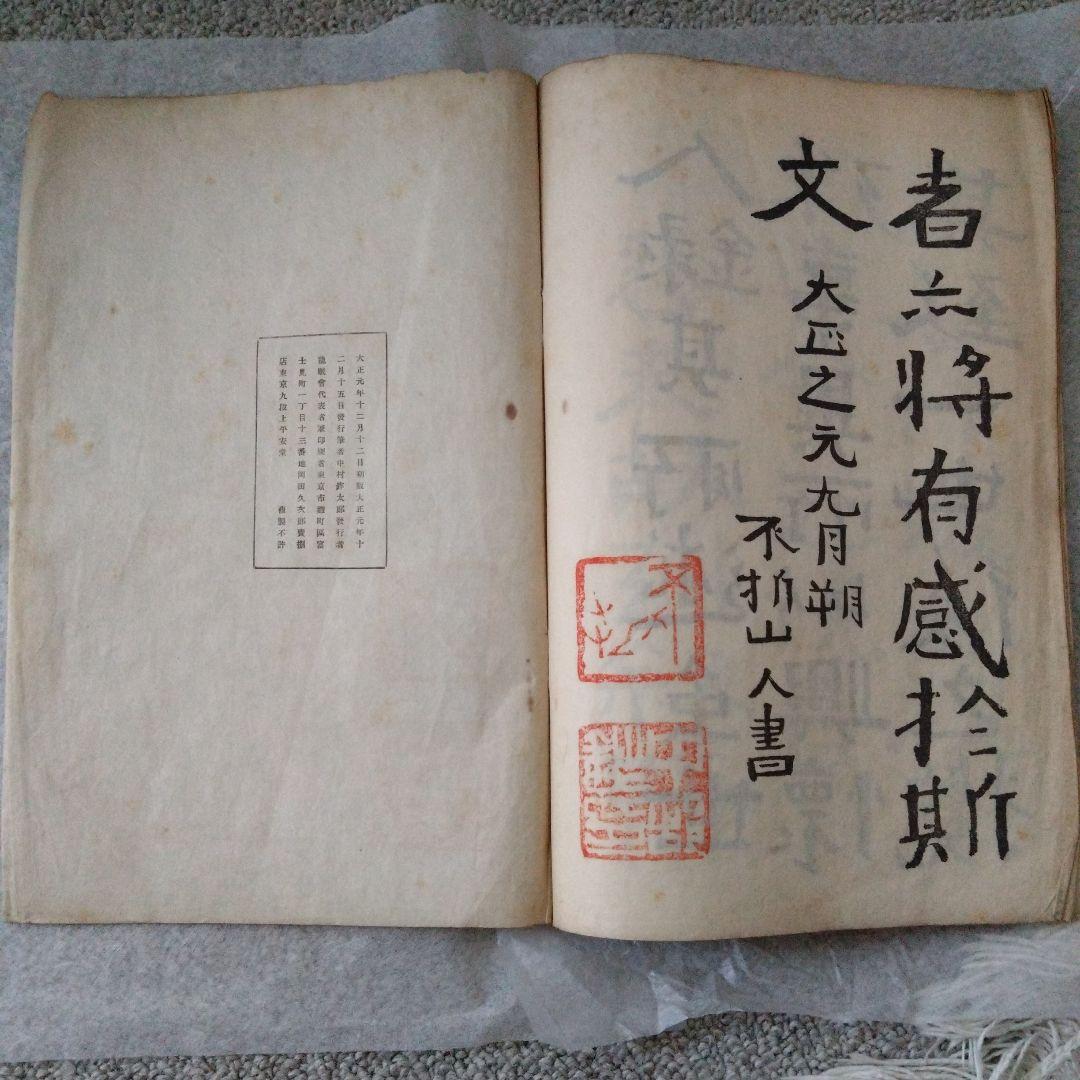 者亦將有感於斯
文
大正之元九月朔
不折山人書
大正元年十二月十二日印刷大正元年十
二月十五日發行筆者中村鈼太郎發行者
龍眠會代表者兼印刷者東京市麴町區富
士見町一丁目十三番地岡田久次郎賣捌
店東京九段上平安堂 複製不許